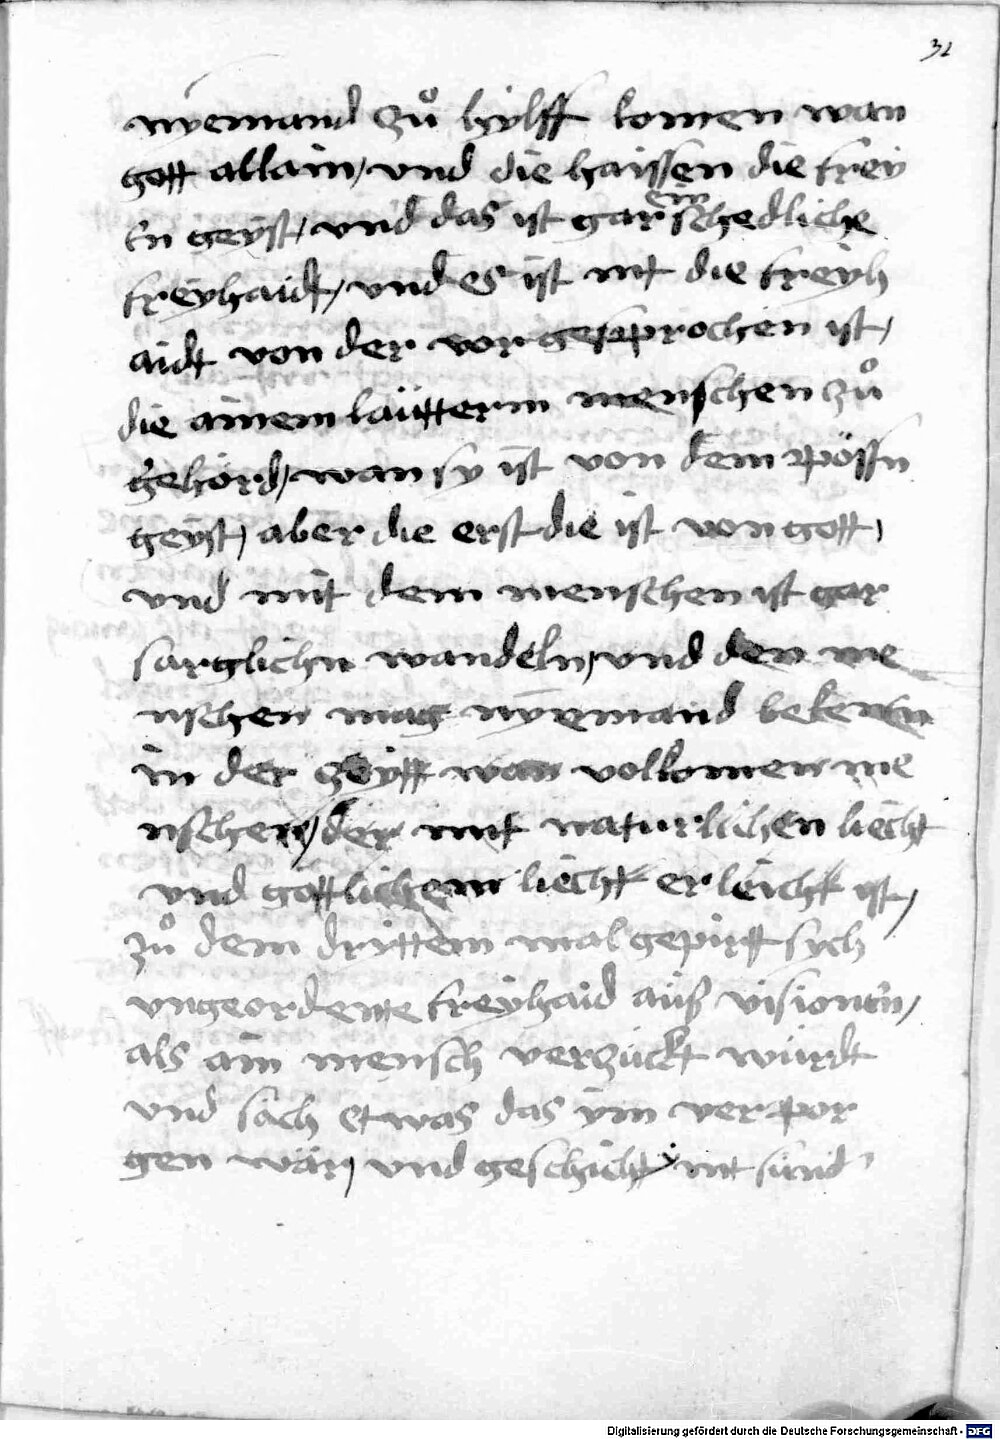 32
nyemand zuͦ hylff komen wan
gott allain / vnd die haissen die frey
en geyst / vnd das ist gar ein schedliche
freyhaidt / vnd es ist nit die freyh
aidt von der vor gesprochen ist /
die ainem läütterm menschen zuͦ
gehörd / wan sy ist von dem pössn
geyst / aber die erst die ist von gott /
vnd mit dem menschen ist gar
sarglichn wandeln / vnd den me
nschen mag nyemand bekenn
in der zeytt wan volkomen me
nschen / der mit naturlichen liecht
vnd gottlichem liecht erleicht ist /
zuͦ dem drittem mal gepirtt sych
vngeordente freyhaid auß visionen /
als ain mensch verzuckt würdt
vnd sach etwas das ym verpor
gen wär / vnd geschicht nit sund
Digitalisierung gefördert durch die Deutsche Forschungsgemeinschaft - DFG